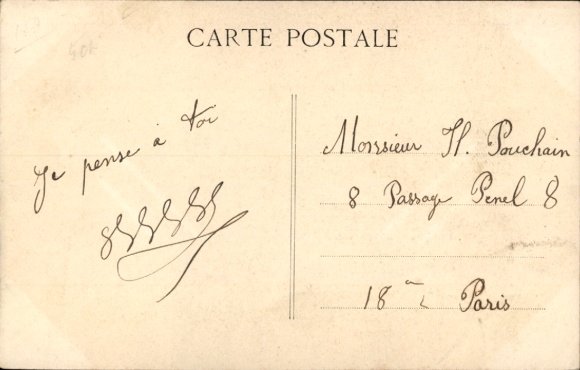 CARTE POSTALE
Je pense à toi
Monsieur Th. Pouchain
8 Passage Penel 8
18e Paris